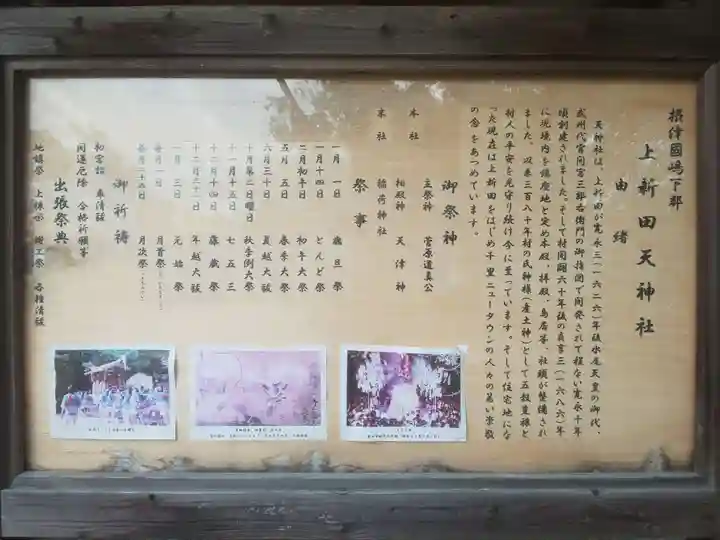 摂津國嶋下郡
上新田天神社
由緒
天神社は、上新田が寛永三(一六二六)年後水尾天皇の御代、
武州代官間宮三郎右衛門の御指図で開発されて程ない寛永十年
頃創建されました。そして村開闢六十年後の貞享三(一六八六)年
に現境内を鎮座地と定め本殿、拝殿、鳥居等、社頭が整備され
ました。以来三百八十年村の氏神様(産土神)として五穀豊穣と
村人の平安を見守り続け今に至っています。そして住宅地にな
った現在は上新田をはじめ千里ニュータウンの人々の篤い崇敬
の念をあつめています。
御祭神
本社 主祭神 菅原道真公
相殿神 天津神
末社 稲荷神社
祭事
一月一日 歳旦祭
一月十四日 とんど祭
二月初午日 初午大祭
五月五日 春季大祭
六月三十日 夏越大祓
十月第二日曜日 秋季例大祭
十一月十五日 七五三
十二月十四日 藤蔵祭
十二月三十一日 年越大祓
一月三日 元始祭
毎月一日 月首祭
毎月二十五日 月次祭
御祈祷
初宮詣 車清祓
開運厄除 合格祈願等
出張祭典
地鎮祭 上棟祭 竣工祭 各種清祓